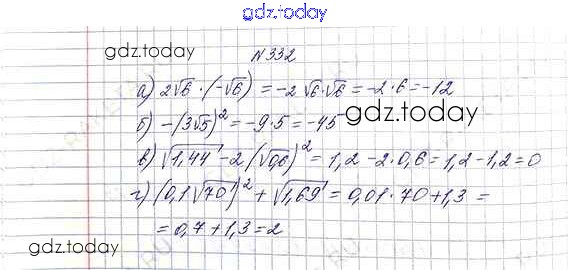 gdz.today
gdz.today
№332
а) 2√6 · (-√6) = -2√6·√6 = -2·6 = -12
б) -(3√5)² = -9·5 = -45
gdz.today
в) √1,44 - 2(√0,6)² = 1,2 - 2·0,6 = 1,2 - 1,2 = 0
г) (0,1√70)² + √1,69 = 0,01·70 + 1,3 =
= 0,7 + 1,3 = 2
gdz.today